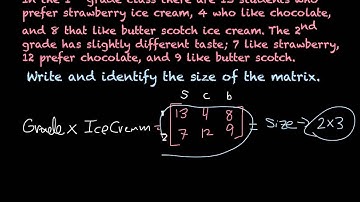 In the 1st grade class there are 13 students who
prefer strawberry ice cream, 4 who like chocolate,
and 8 that like butter scotch ice cream. The 2nd
grade has slightly different taste; 7 like strawberry,
12 prefer chocolate, and 9 like butter scotch.
Write and identify the size of the matrix.
S C b
1 13 4 8
Grade x IceCream = = Size → 2x3
2 7 12 9